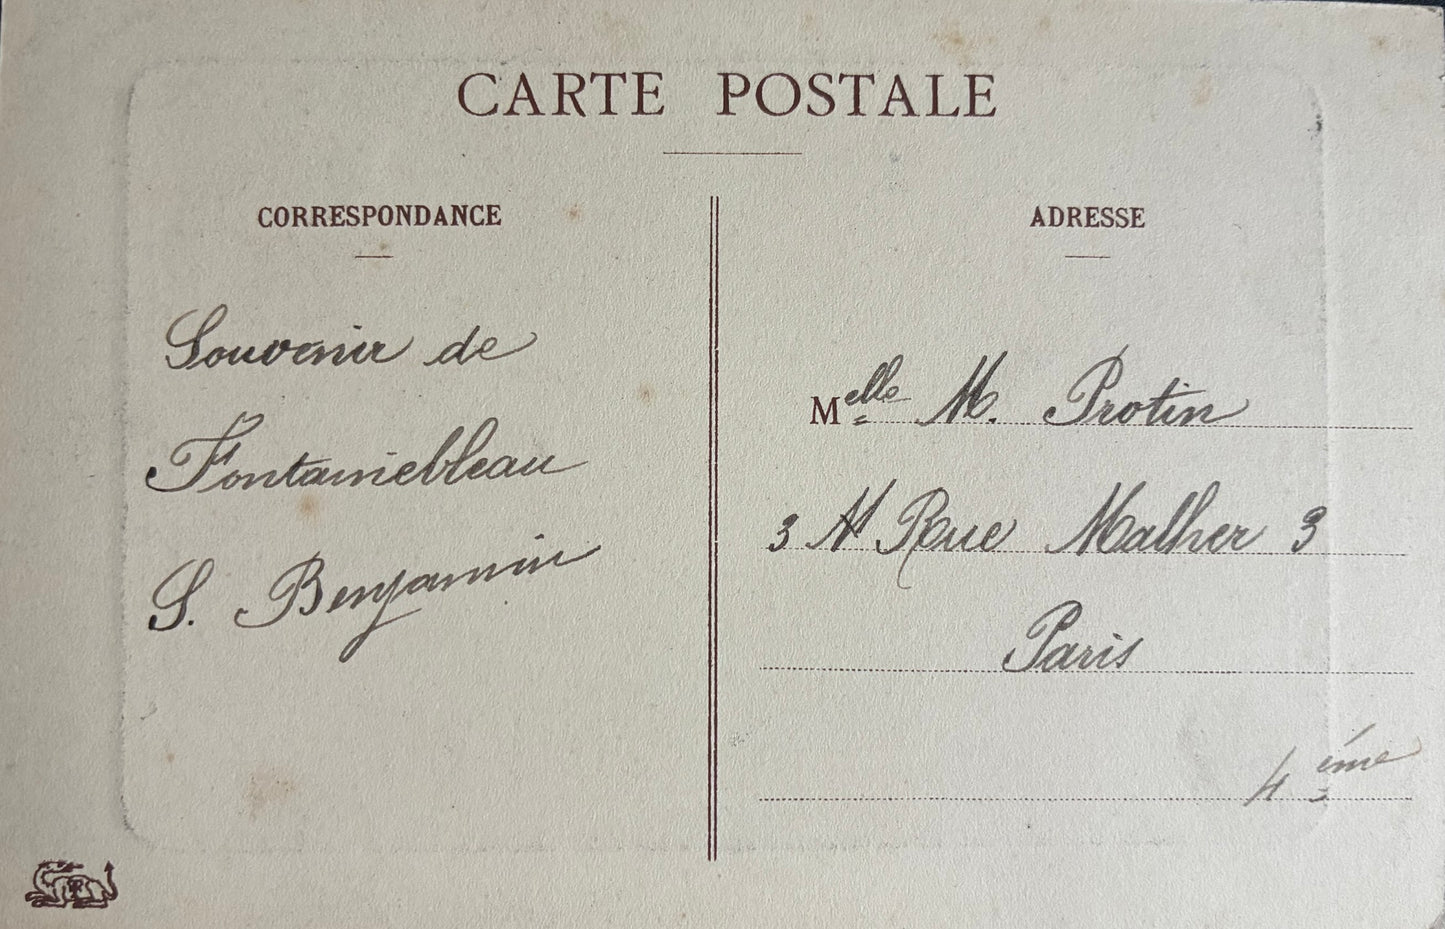 CARTE POSTALE
CORRESPONDANCE
Souvenir de
Fontainebleau
S. Benjamin
ADRESSE
Melle M. Protin
3 N Rue Malher 3
Paris
4ème